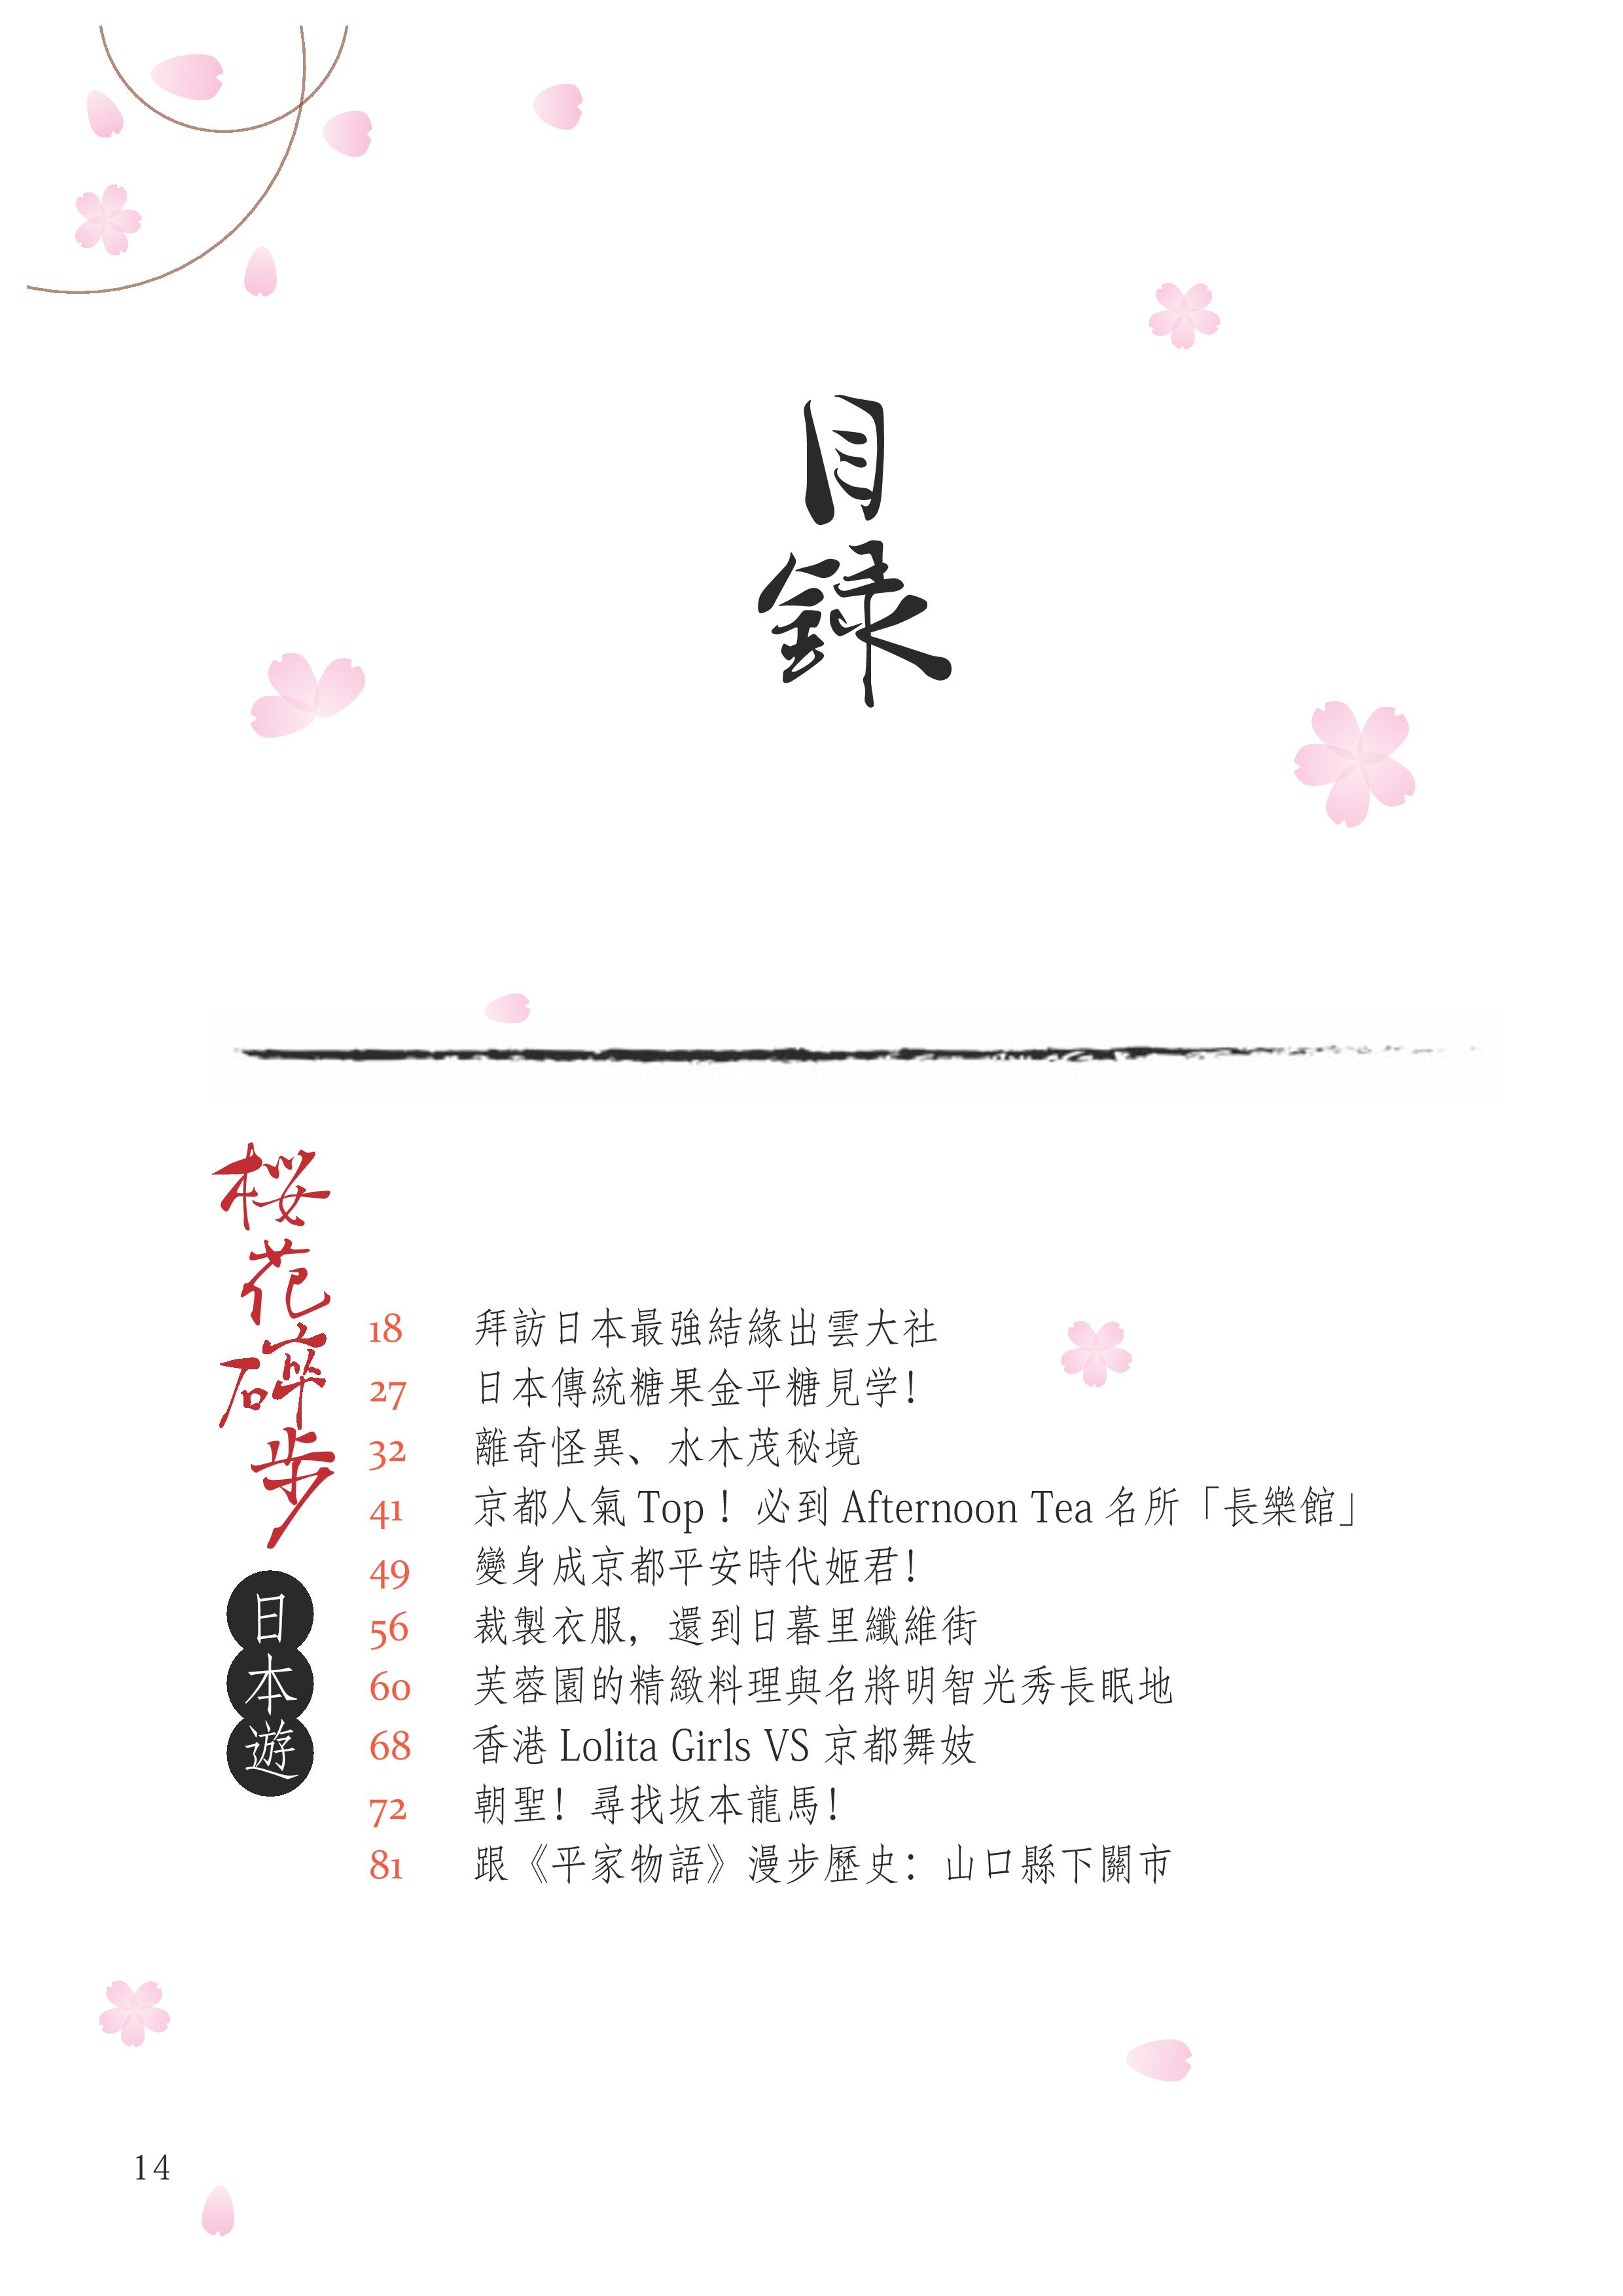 目録
桜花碎步
日本遊
18 拜訪日本最強結緣出雲大社
27 日本傳統糖果金平糖見学！
32 離奇怪異、水木茂秘境
41 京都人氣 Top！必到 Afternoon Tea 名所「長樂館」
49 變身成京都平安時代姬君！
56 裁製衣服，還到日暮里纖維街
60 芙蓉園的精緻料理與名將明智光秀長眠地
68 香港 Lolita Girls VS 京都舞妓
72 朝聖！尋找坂本龍馬！
81 跟《平家物語》漫步歷史：山口縣下關市
14